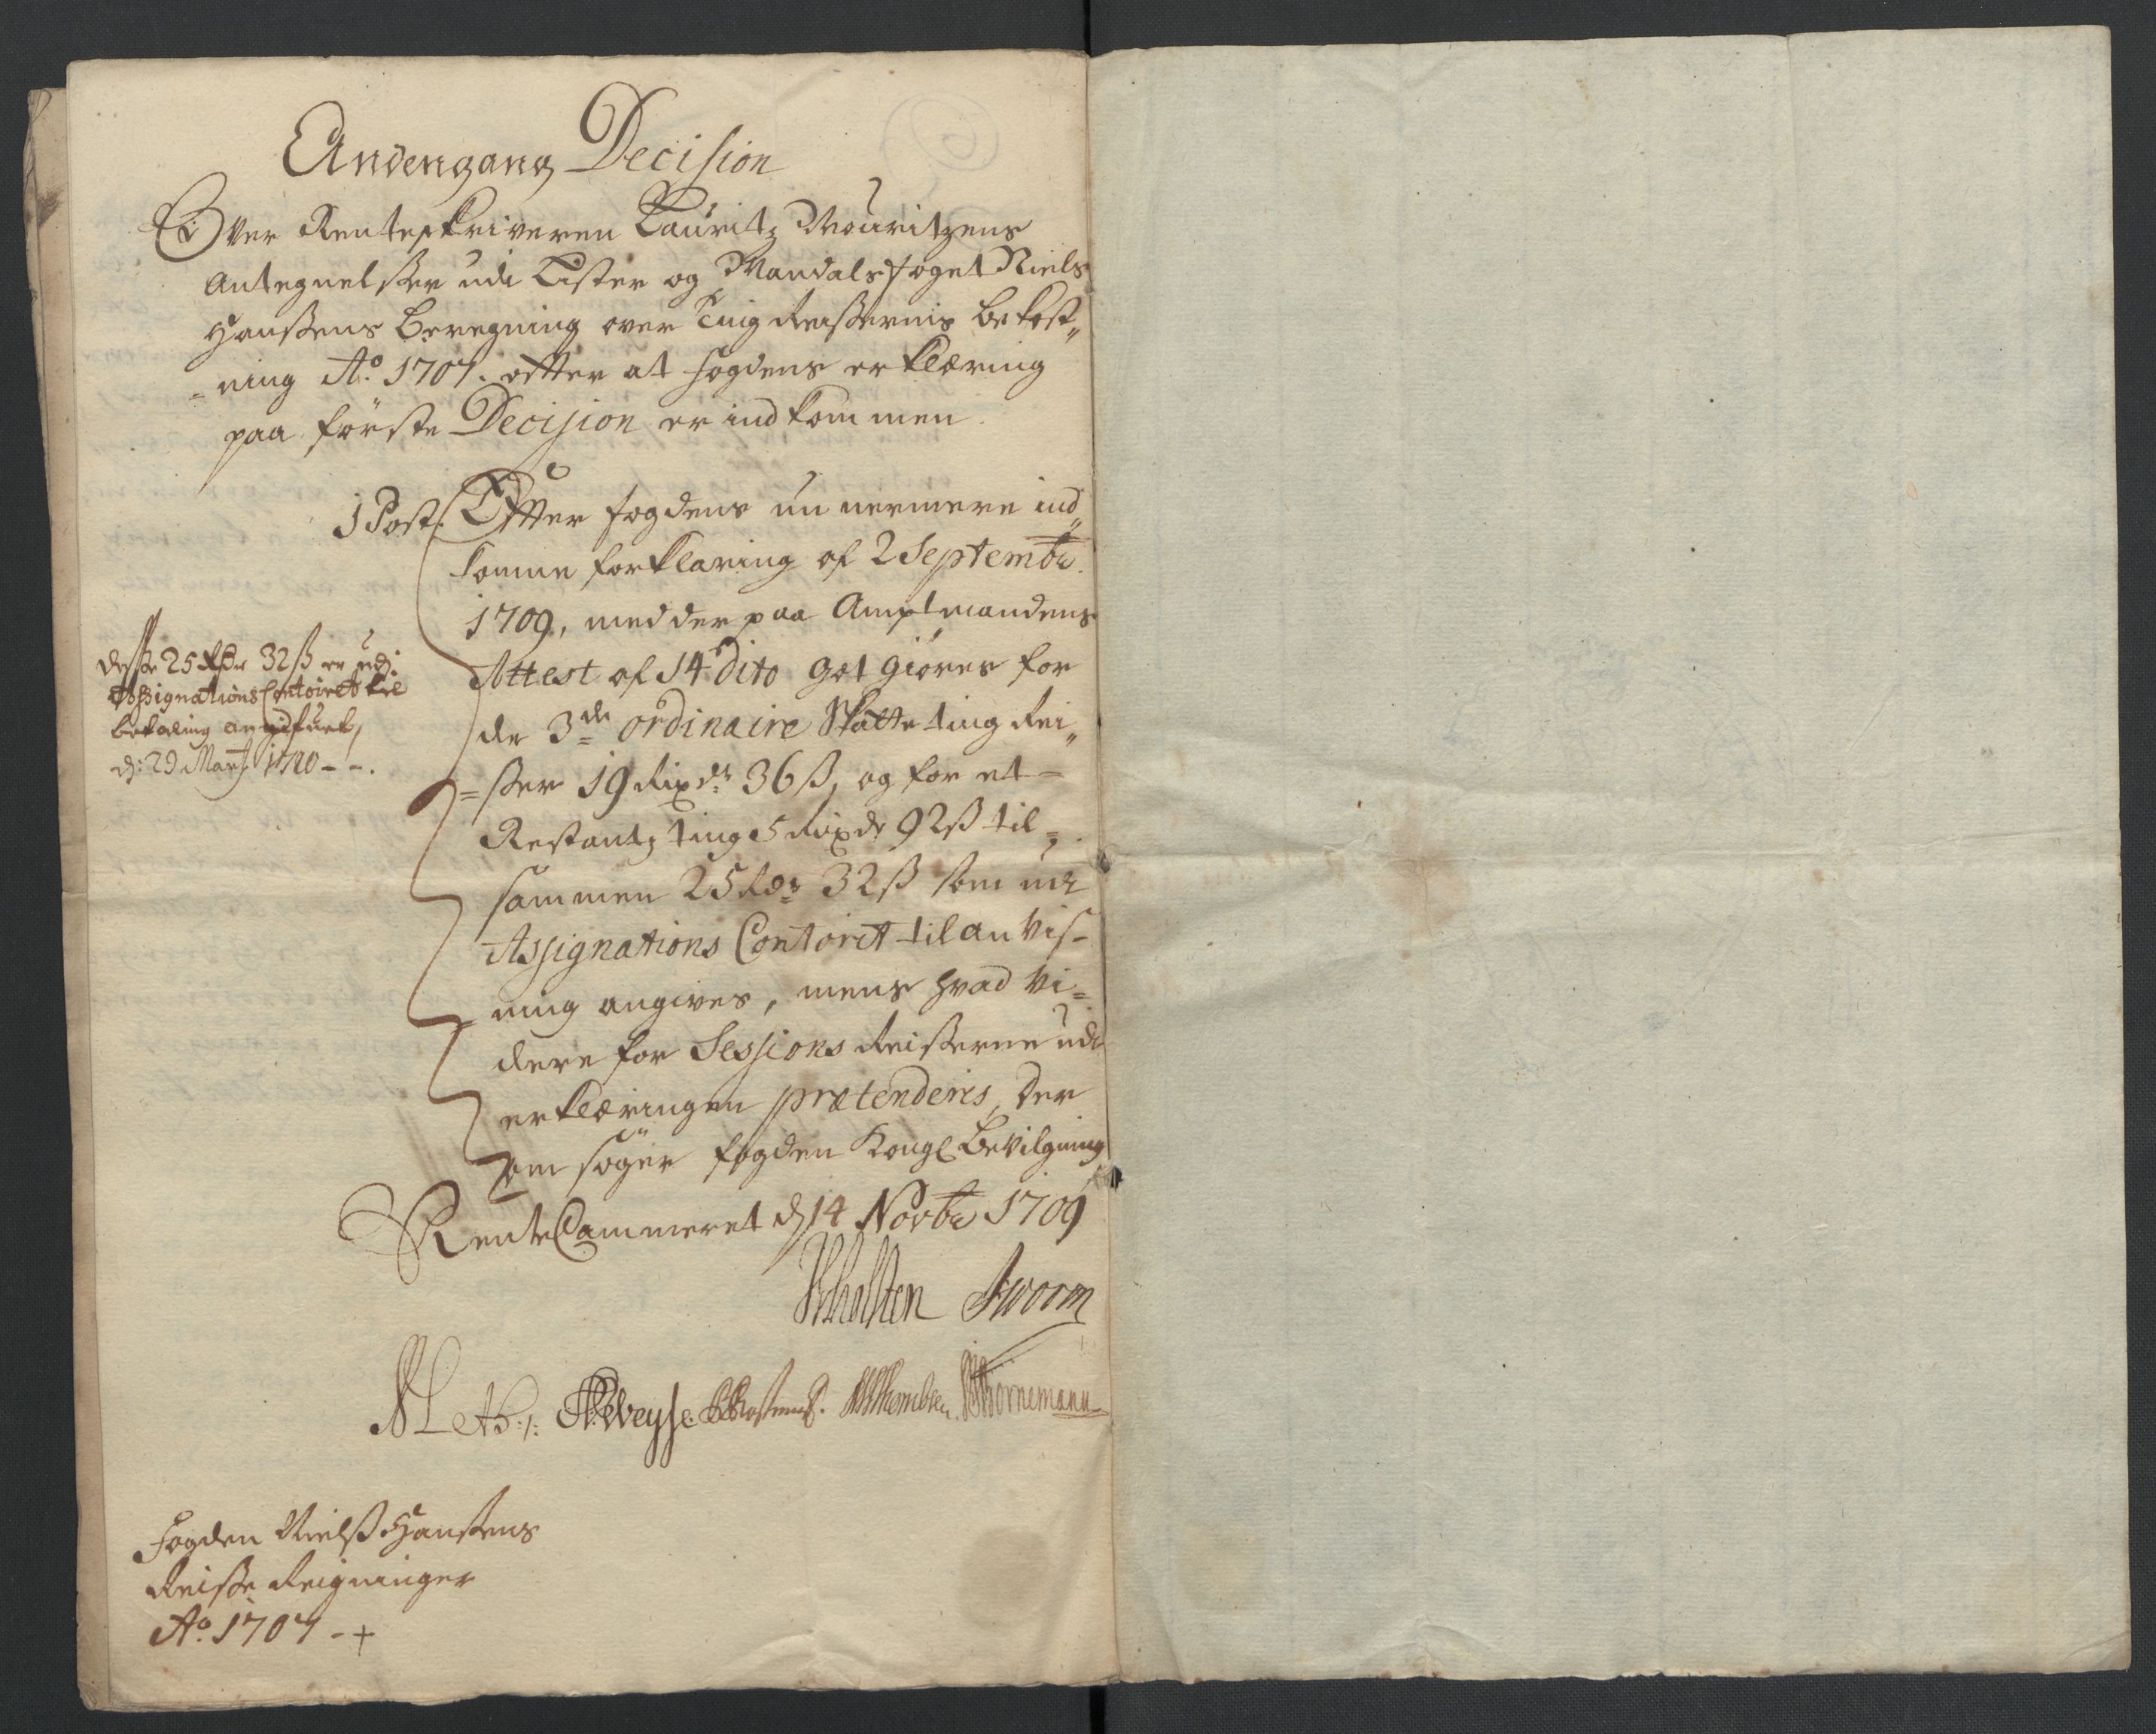 Andengang Decision
Over Renteskriveren Lauritz Mouritzens
Antegnelsser udi Lister og Mandals foget Niels
Hanssens Beregning over Ting Reissernis bekost„
=ning Aº. 1707. efter at fogdens erklæring
paa förste Decision er indkommen.
1 Post. Efter fogdens nu nermere ind„
komne forklaring af 2 Septembr.
1709, med der paa Amptmandens
Attest af 14 Dito got giöres for
de 3de ordinaire Skatte ting Rei„
=sser 19 Rixdr 36 ß, og for et=
Restantz ting 5 Rixdr 92 ß til=
sammen 25 Rdr 32 ß som udi
Assignations Contoret til anvis-
ning angives, mens hvad vi=
dere for Sessions Reisserne udi
erklæringen prætenderis, der
om söger fogden Kongl Bevilgning
Desse 25 Rdr 32 ß er udi
Assignations Contoiret til
betaling angifuet,
d: 29 Marti 1710 - -.
Rente Cammeret d 14 Novbr 1709
Worm
Weyse
Bornemann
Fogden Nielß Hanssens
Reisse Reigninger
Aº. 1707 -+